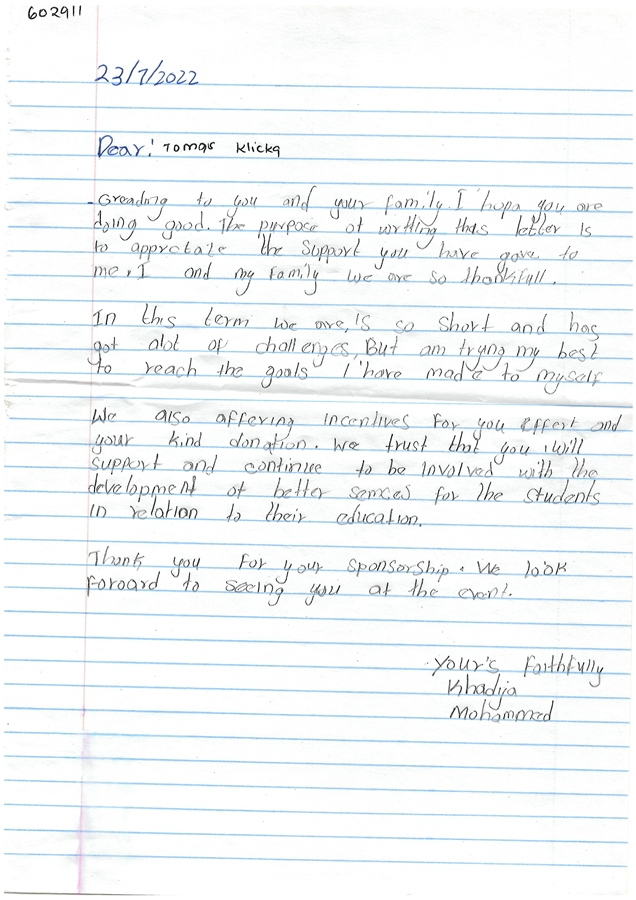 602911
23/7/2022
Dear! Tomas Klicka
- Greading to you and your family. I hopa you are
doing good. The purpoce of writting thas letter is
to appretate the support you have gave to
me, I and my family we are so thankfull.
In this term we are, is so short and has
got alot of challenges, But am trying my best
to reach the goals I have made to myself
We also affering incentives for you effort and
your kind donation. We trust that you will
support and continue to be involved with the
development of better services for the students
in relation to their education.
Thank you for your sponsorship. We look
foroard to seeing you at the event.
Your's Faithfully
Khadija
Mohammed